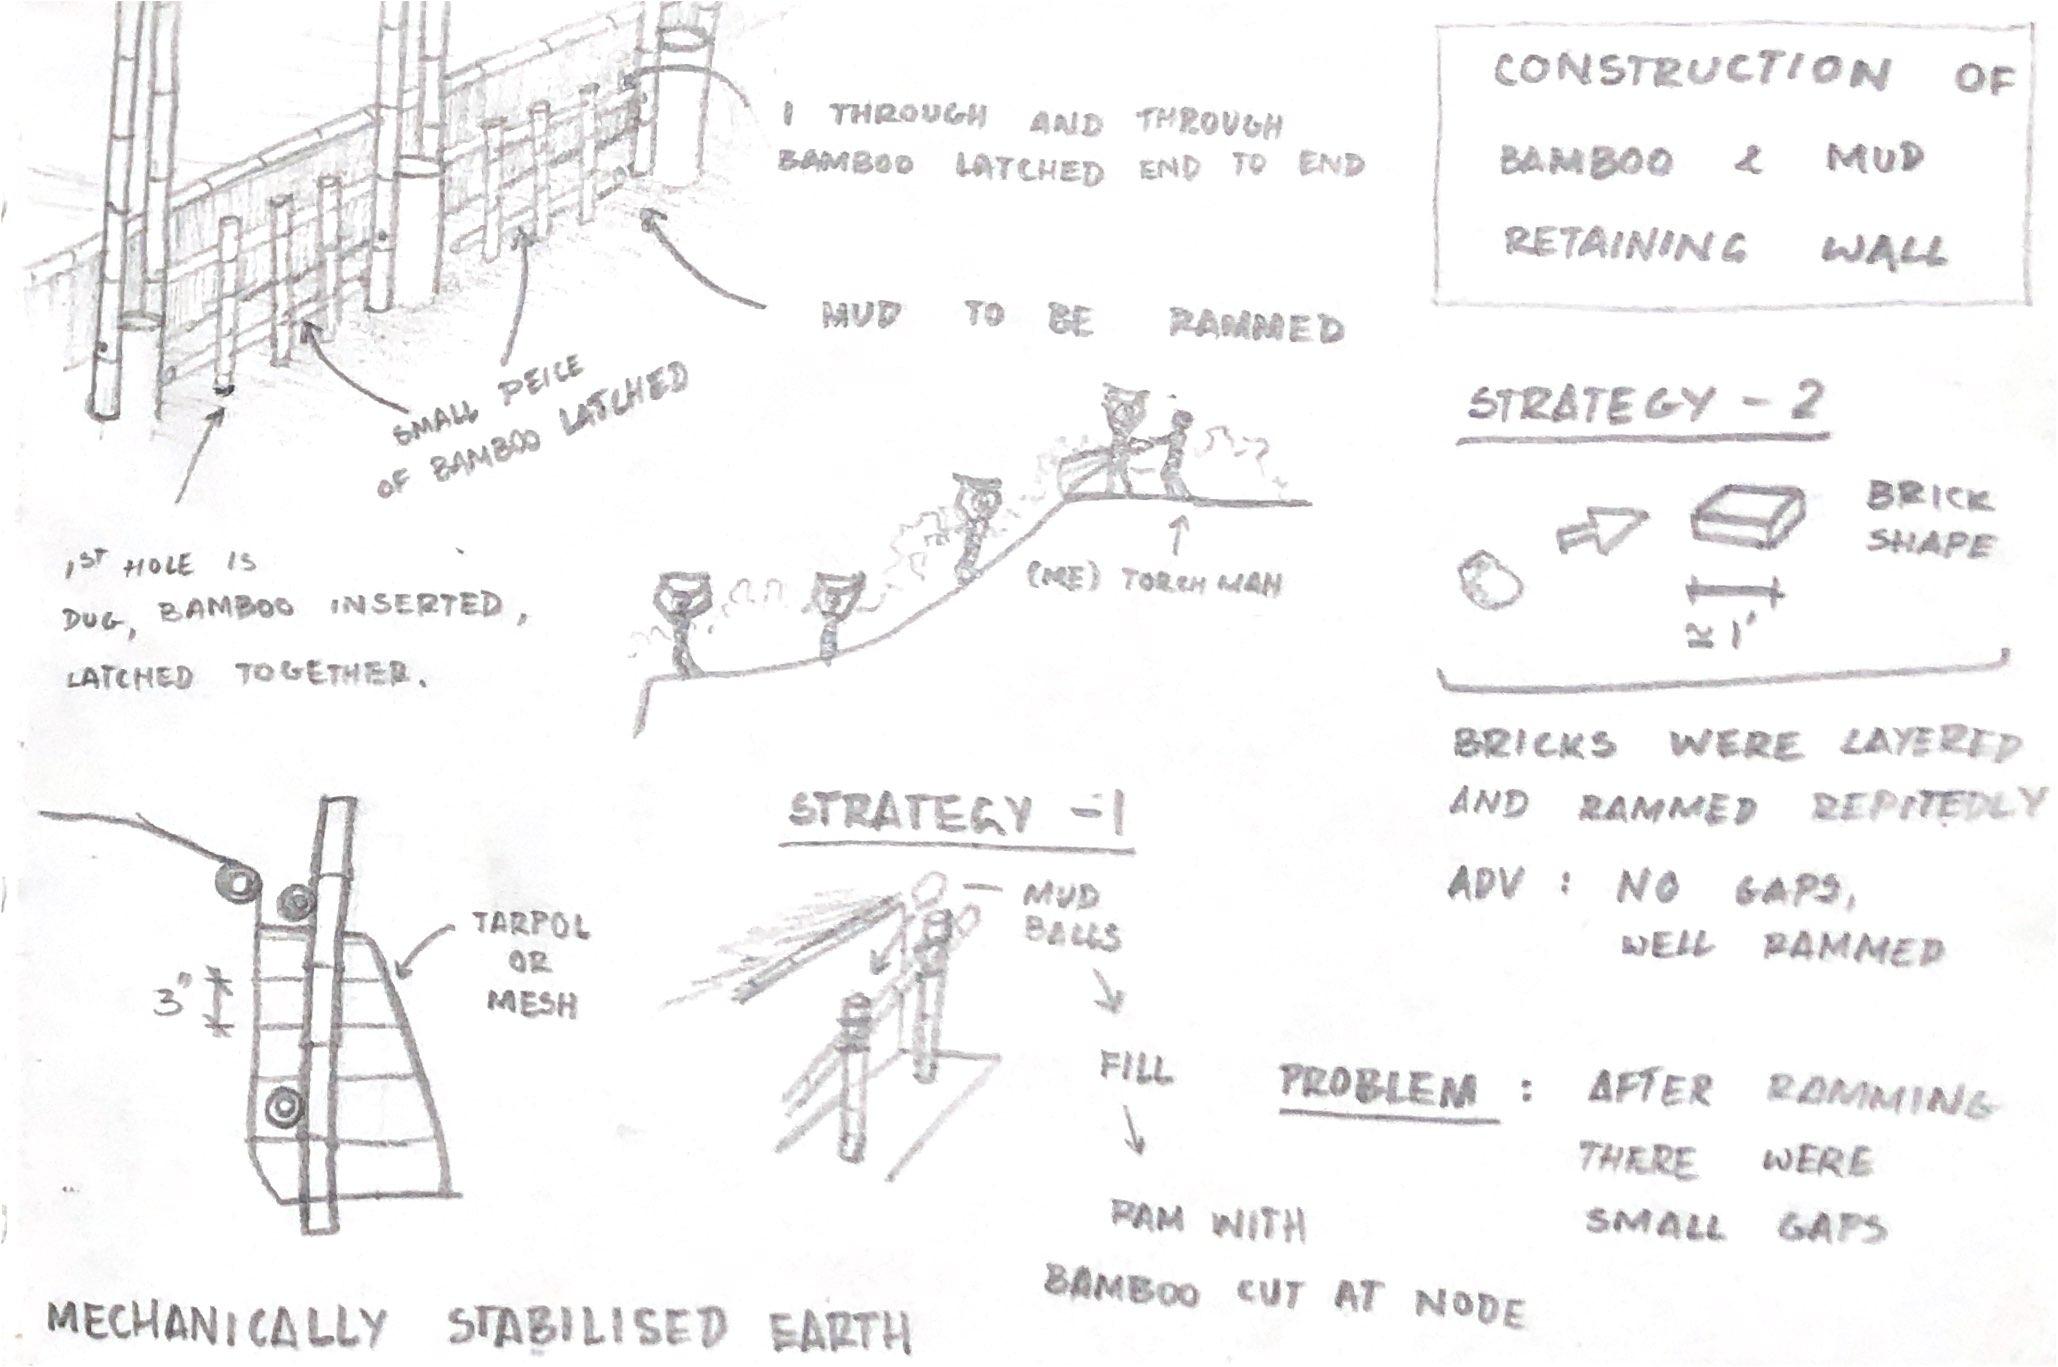 CONSTRUCTION OF
BAMBOO & MUD
RETAINING WALL
1 THROUGH AND THROUGH
BAMBOO LATCHED END TO END
MUD TO BE RAMMED
SMALL PEICE
OF BAMBOO LATCHED
1ST HOLE IS
DUG, BAMBOO INSERTED,
LATCHED TOGETHER.
(ME) TORCH MAN
STRATEGY - 2
BRICK
SHAPE
≃ 1'
BRICKS WERE LAYERED
AND RAMMED REPITEDLY
ADV : NO GAPS,
WELL RAMMED
TARPOL
OR
MESH
3"
MECHANICALLY STABILISED EARTH
STRATEGY - 1
MUD
BALLS
FILL
RAM WITH
BAMBOO CUT AT NODE
PROBLEM : AFTER RAMMING
THERE WERE
SMALL GAPS